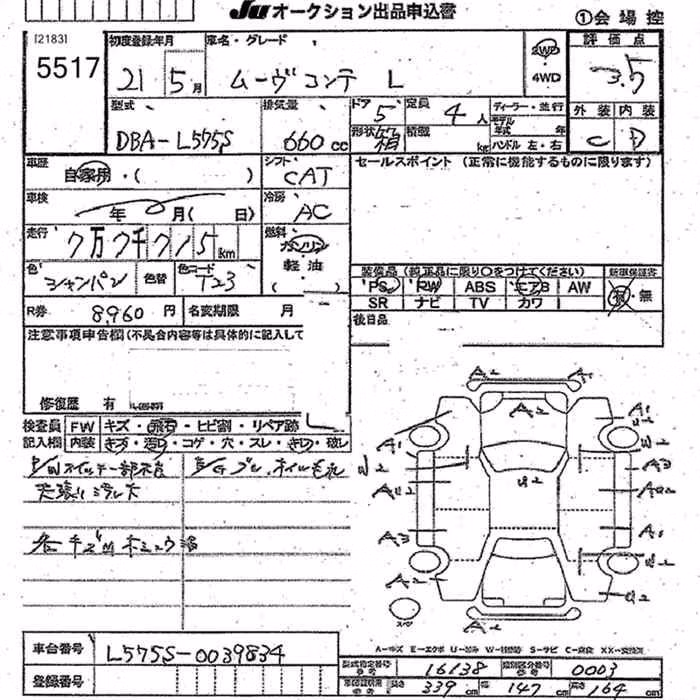 JU オークション出品申込書
①会場控
[2183]
5517
初度登録年月
21 5月
車名・グレード
ムーヴコンテ L
2WD
4WD
評価点
3.5
外装 内装
C D
型式
DBA-L575S
排気量
660 cc
ドア 5
定員 4人
形状 箱
積載 kg
ディーラー・並行
モデル年式 年
ハンドル 左・右
車歴
自家用・( )
シフト
CAT
セールスポイント (正常に機能するものに限ります)
車検
年 月( 日)
冷房
AC
走行
7万7千715km
燃料
ガソリン
軽油
色
シャンパン
色替
色コード
T23
装備品 (純正品に限り○をつけてください)
新車保証書
PS PW ABS エアB AW
SR ナビ TV カワ
有・無
R券
8,960円
名変期限 月
後日品
注意事項申告欄(不具合内容等は具体的に記入して
修復歴 有
検査員 FW キズ・飛石・ヒビ割・リペア跡
記入欄 内装 キズ・汚れ・コゲ・穴・スレ・キレ・破レ
P/Wスイッチ一部不良
E/Gブレ、オイルもれ
天張り
各キズ凹
A2 A1
A2
A1 A1
W2 U2 W2
A3
AU2 AU2
A3 A1
W2
A2 U2
A2
スペア
A-キズ E-エクボ U-凹み W-補修跡 S-サビ C-腐食 XX-交換済
車台番号
L575S-0039834
登録番号
型式指定番号 16138
類別区分番号 0003
長さ 339cm 幅 147cm 高さ 164cm